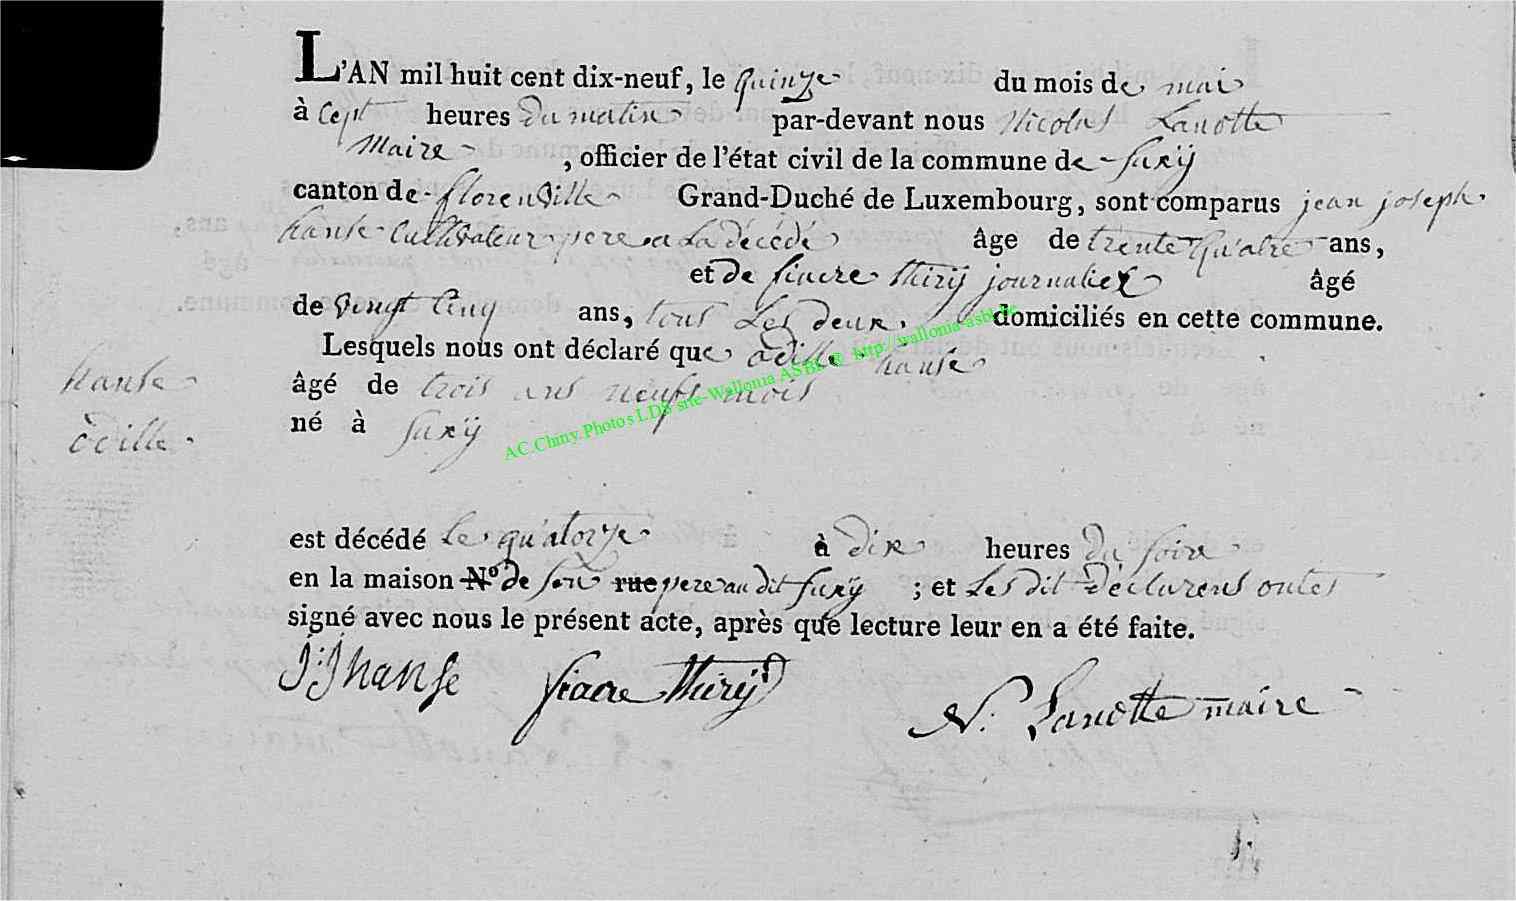 L'AN mil huit cent dix-neuf, le quinze du mois de mai
à Cept heures du matin par-devant nous Nicolas Lanotte
Maire , officier de l'état civil de la commune de Suxÿ
canton de florenville Grand-Duché de Luxembourg, sont comparus jean joseph
hanse Cultivateur pere a La décédé âge de trente qu'atre ans,
et de fiacre thirÿ journalier âgé
de vingt Cinq ans, tous Les deux domiciliés en cette commune.
Lesquels nous ont déclaré que odille hanse
hanse
âgé de trois ans neufs mois
odille
né à Suxÿ
AC.Chiny.Photos LDB site-Wallonia ASBL @ http://wallonia-asbl.be
est décédé Le qu'atorze à dix heures du soire
en la maison N° de son rue pere au dit suxÿ ; et Les dit déclarens ontes
signé avec nous le présent acte, après que lecture leur en a été faite.
J: J hanse fiacre thirÿ
N. Lanotte maire